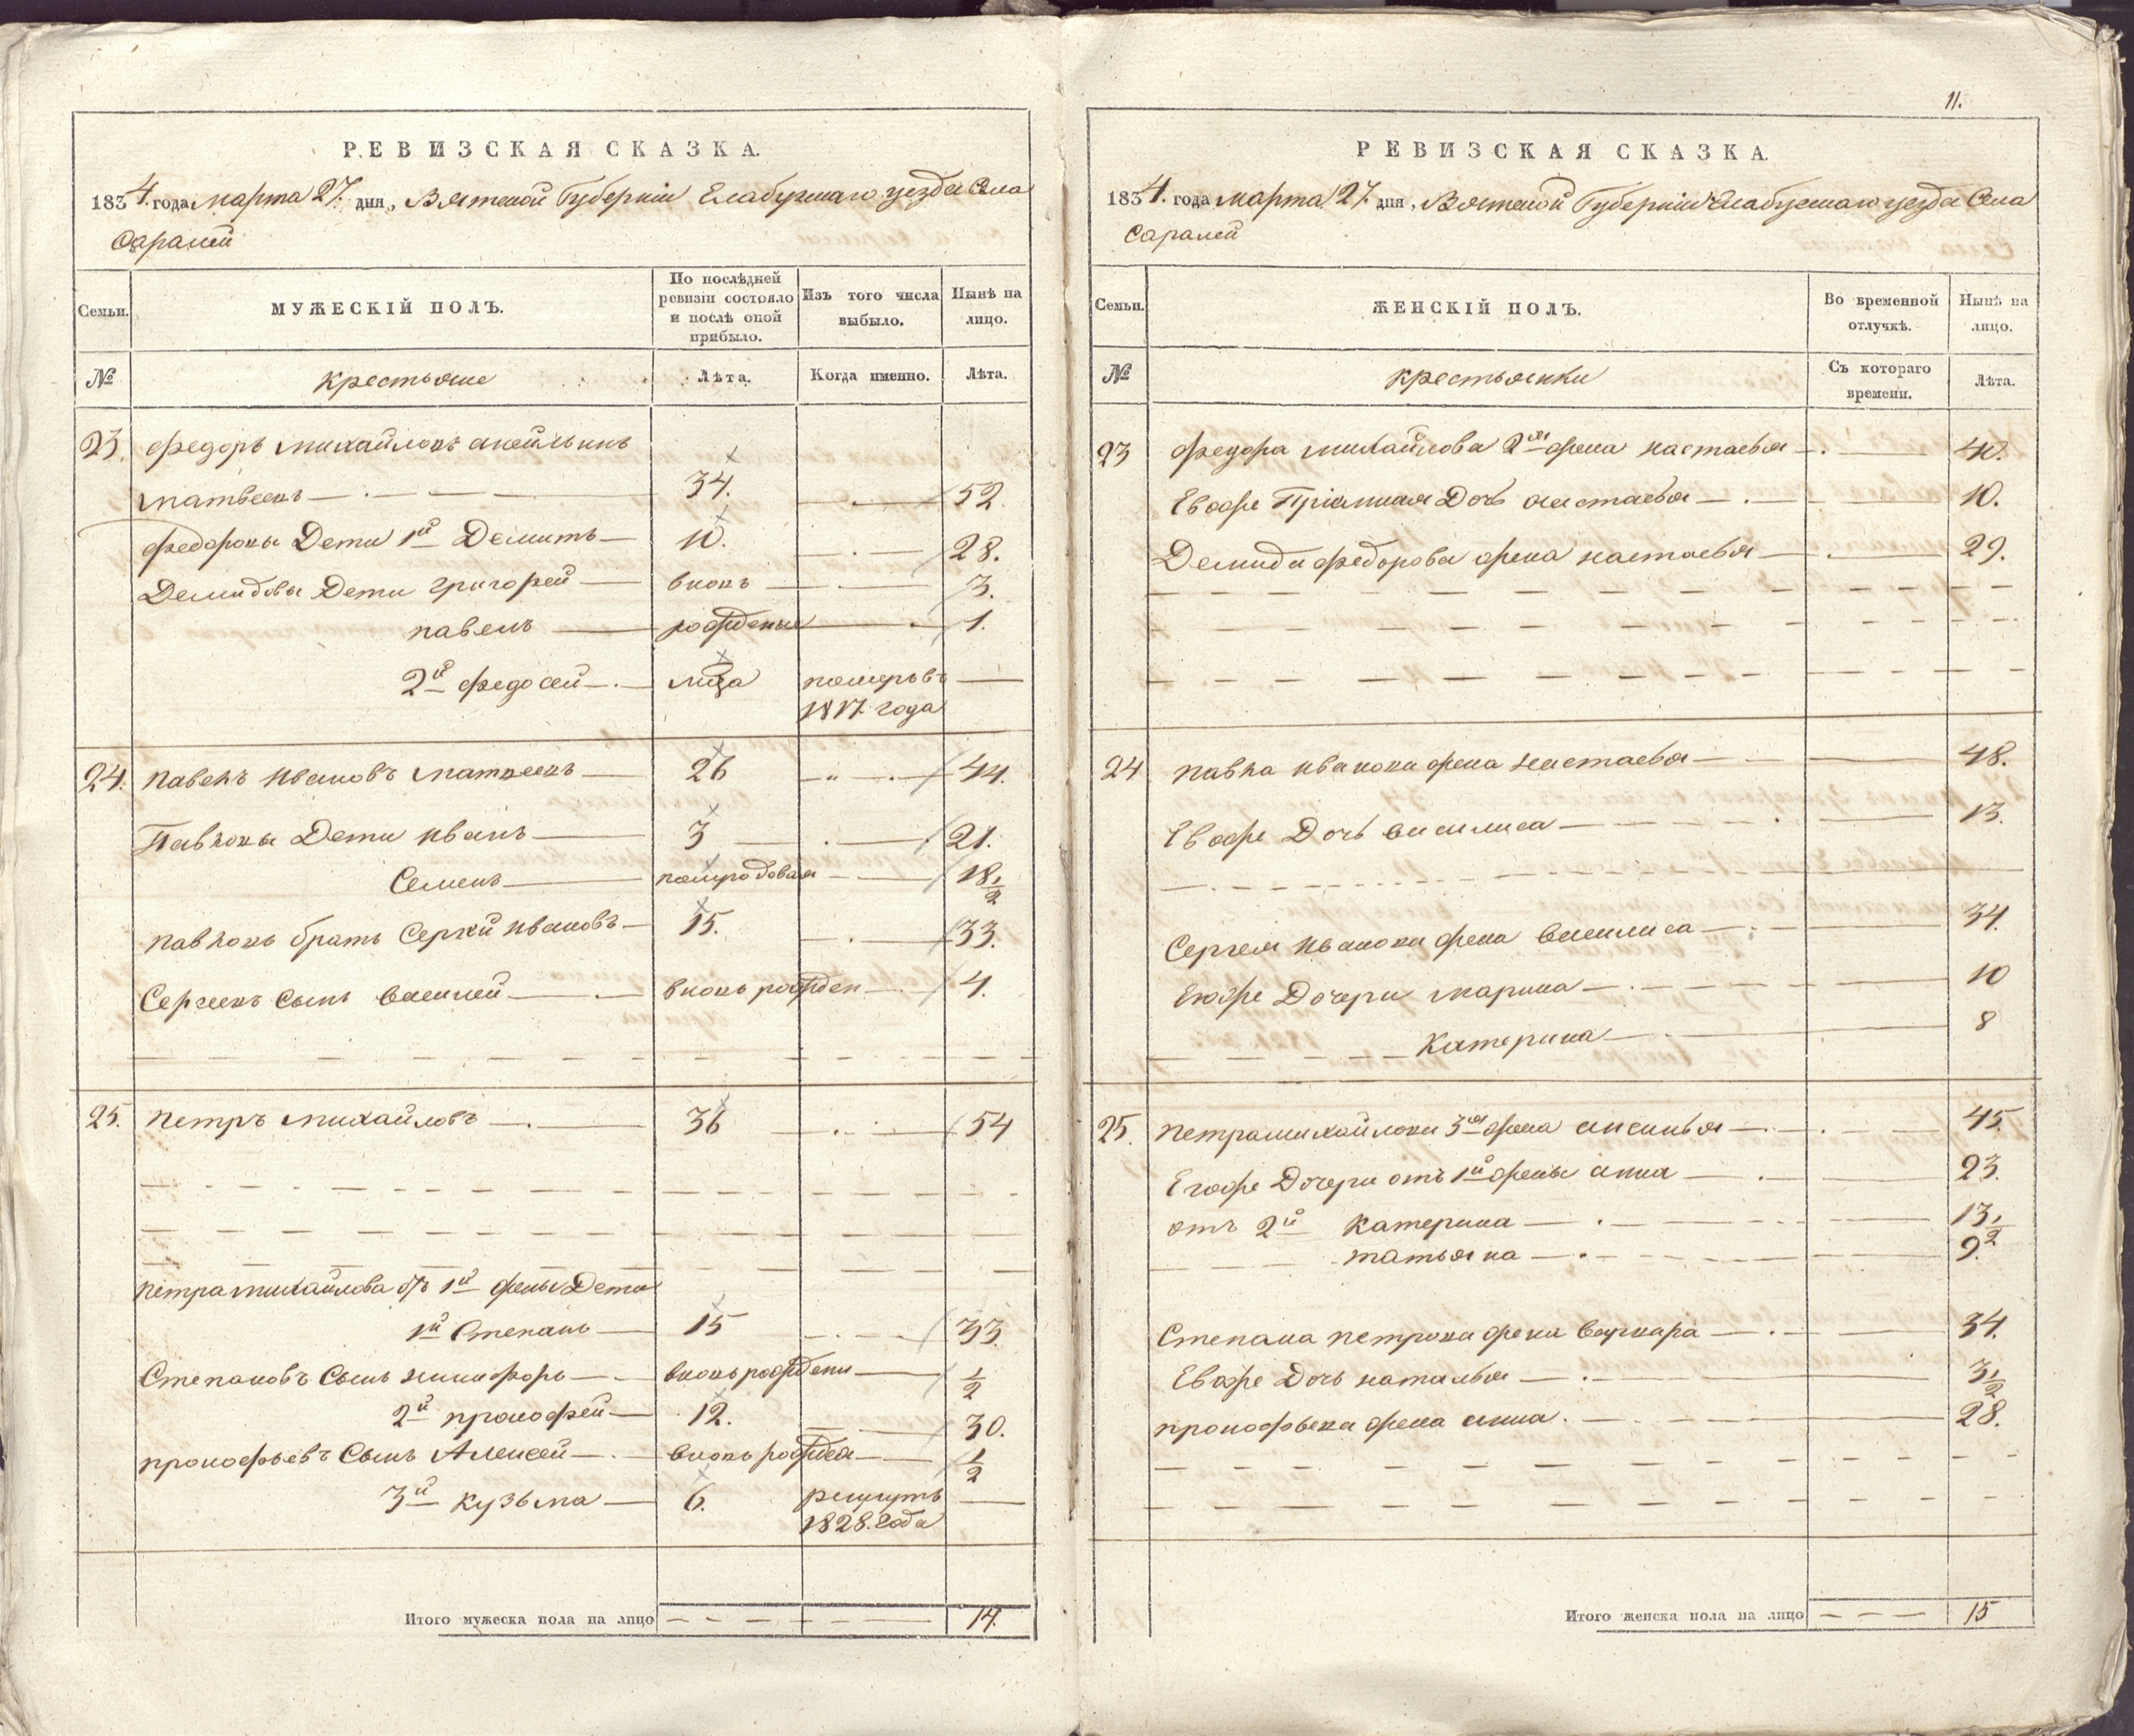 РЕВИЗСКАЯ СКАЗКА.
1834. года марта 27. дня, Вятской Губернiи Елабужскаго уезда Села
Саралей
Семьи.
МУЖЕСКІЙ ПОЛЪ.
По послѣдней ревизіи состояло и послѣ оной прибыло.
Изъ того числа выбыло.
Нынѣ на лицо.
№
крестьяне
Лѣта.
Когда именно.
Лѣта.
23. федоръ михайловъ
матвеевъ 34. 52.
федоровы Дети 1й Демитъ 10. 28.
Демидовы Дети григорей вновь 3.
павелъ рожденые 1.
2й федосей померъ въ
1817 года
24. павелъ ивановъ матвеевъ 26 44.
Павловы Дети иванъ 3 21.
Семенъ полугодовал 18 1/2
павловъ братъ Сергей ивановъ 15. 33.
Сергеевъ Сынъ василей вновь рожден 4.
25. петръ михайловъ 36 54
петра михайлова отъ 1й жены Дети
1й Степанъ 15 33.
Степановъ Сынъ никифоръ вновь рожденн 1/2
2й прокофей 12. 30.
прокофьевъ Сынъ Алексей вновь рожден 1/2
3й кузьма 6. рекрутъ
1828. года
Итого мужеска пола на лицо 14.
11.
РЕВИЗСКАЯ СКАЗКА.
1834. года марта 27. дня, Вятской Губернiи Елабужскаго уезда Села
Саралей
Семьи.
ЖЕНСКІЙ ПОЛЪ.
Во временной отлучкѣ.
Нынѣ на лицо.
№
крестьянки
Съ котораго времени.
Лѣта.
23 федора михайлова 2я жена настасья 40.
Евоже Дочь настасья 10.
Демида федорова жена настасья 29.
24 павла иванова жена настасья 48.
Евоже Дочь василиса 13.
Сергея иванова жена василиса 34.
Евоже Дочери марина 10
Катерина 8
25. петра михайлова 3я жена аксинья 45
Егоже Дочери отъ 1й жены анна 23.
отъ 2й катерина 13 1/2
татьяна 9.
Степана петрова жена варвара 34.
Евоже Дочь наталья 3 1/2
прокофьева жена анна. 28.
Итого женска пола на лицо 15